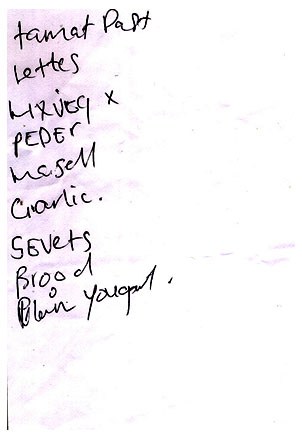 tamat Past
Lettes
MIXVEg x
PEPEr
Masell
Garlic.
SEVets
Brood
Plain Yougart.